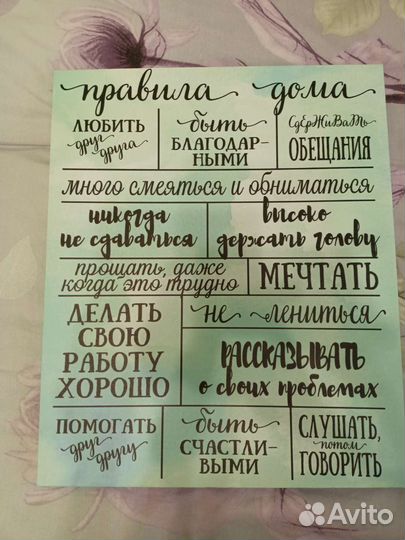 правила дома
ЛЮБИТЬ
друг
друга
быть
БЛАГОДАР-
НЫМИ
СдЕРЖиВаТЬ
ОБЕЩАНИЯ
много смеяться и обниматься
никогда
не сдаваться
высоко
держать голову
прощать, даже
когда это трудно
МЕЧТАТЬ
ДЕЛАТЬ
СВОЮ
РАБОТУ
ХОРОШО
не лениться
РАССКАЗЫВАТЬ
о своих проблемах
ПОМОГАТЬ
друг
другу
быть
СЧАСТЛИ-
ВЫМИ
СЛУШАТЬ,
потом
ГОВОРИТЬ
Avito